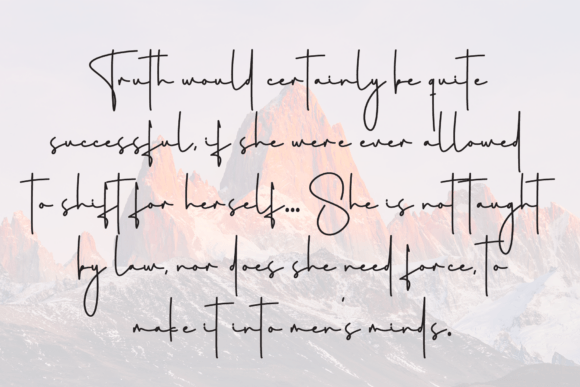 Truth would certainly be quite
successful, if she were ever allowed
to shift for herself... She is not taught
by law, nor does she need force, to
make it into men's minds.